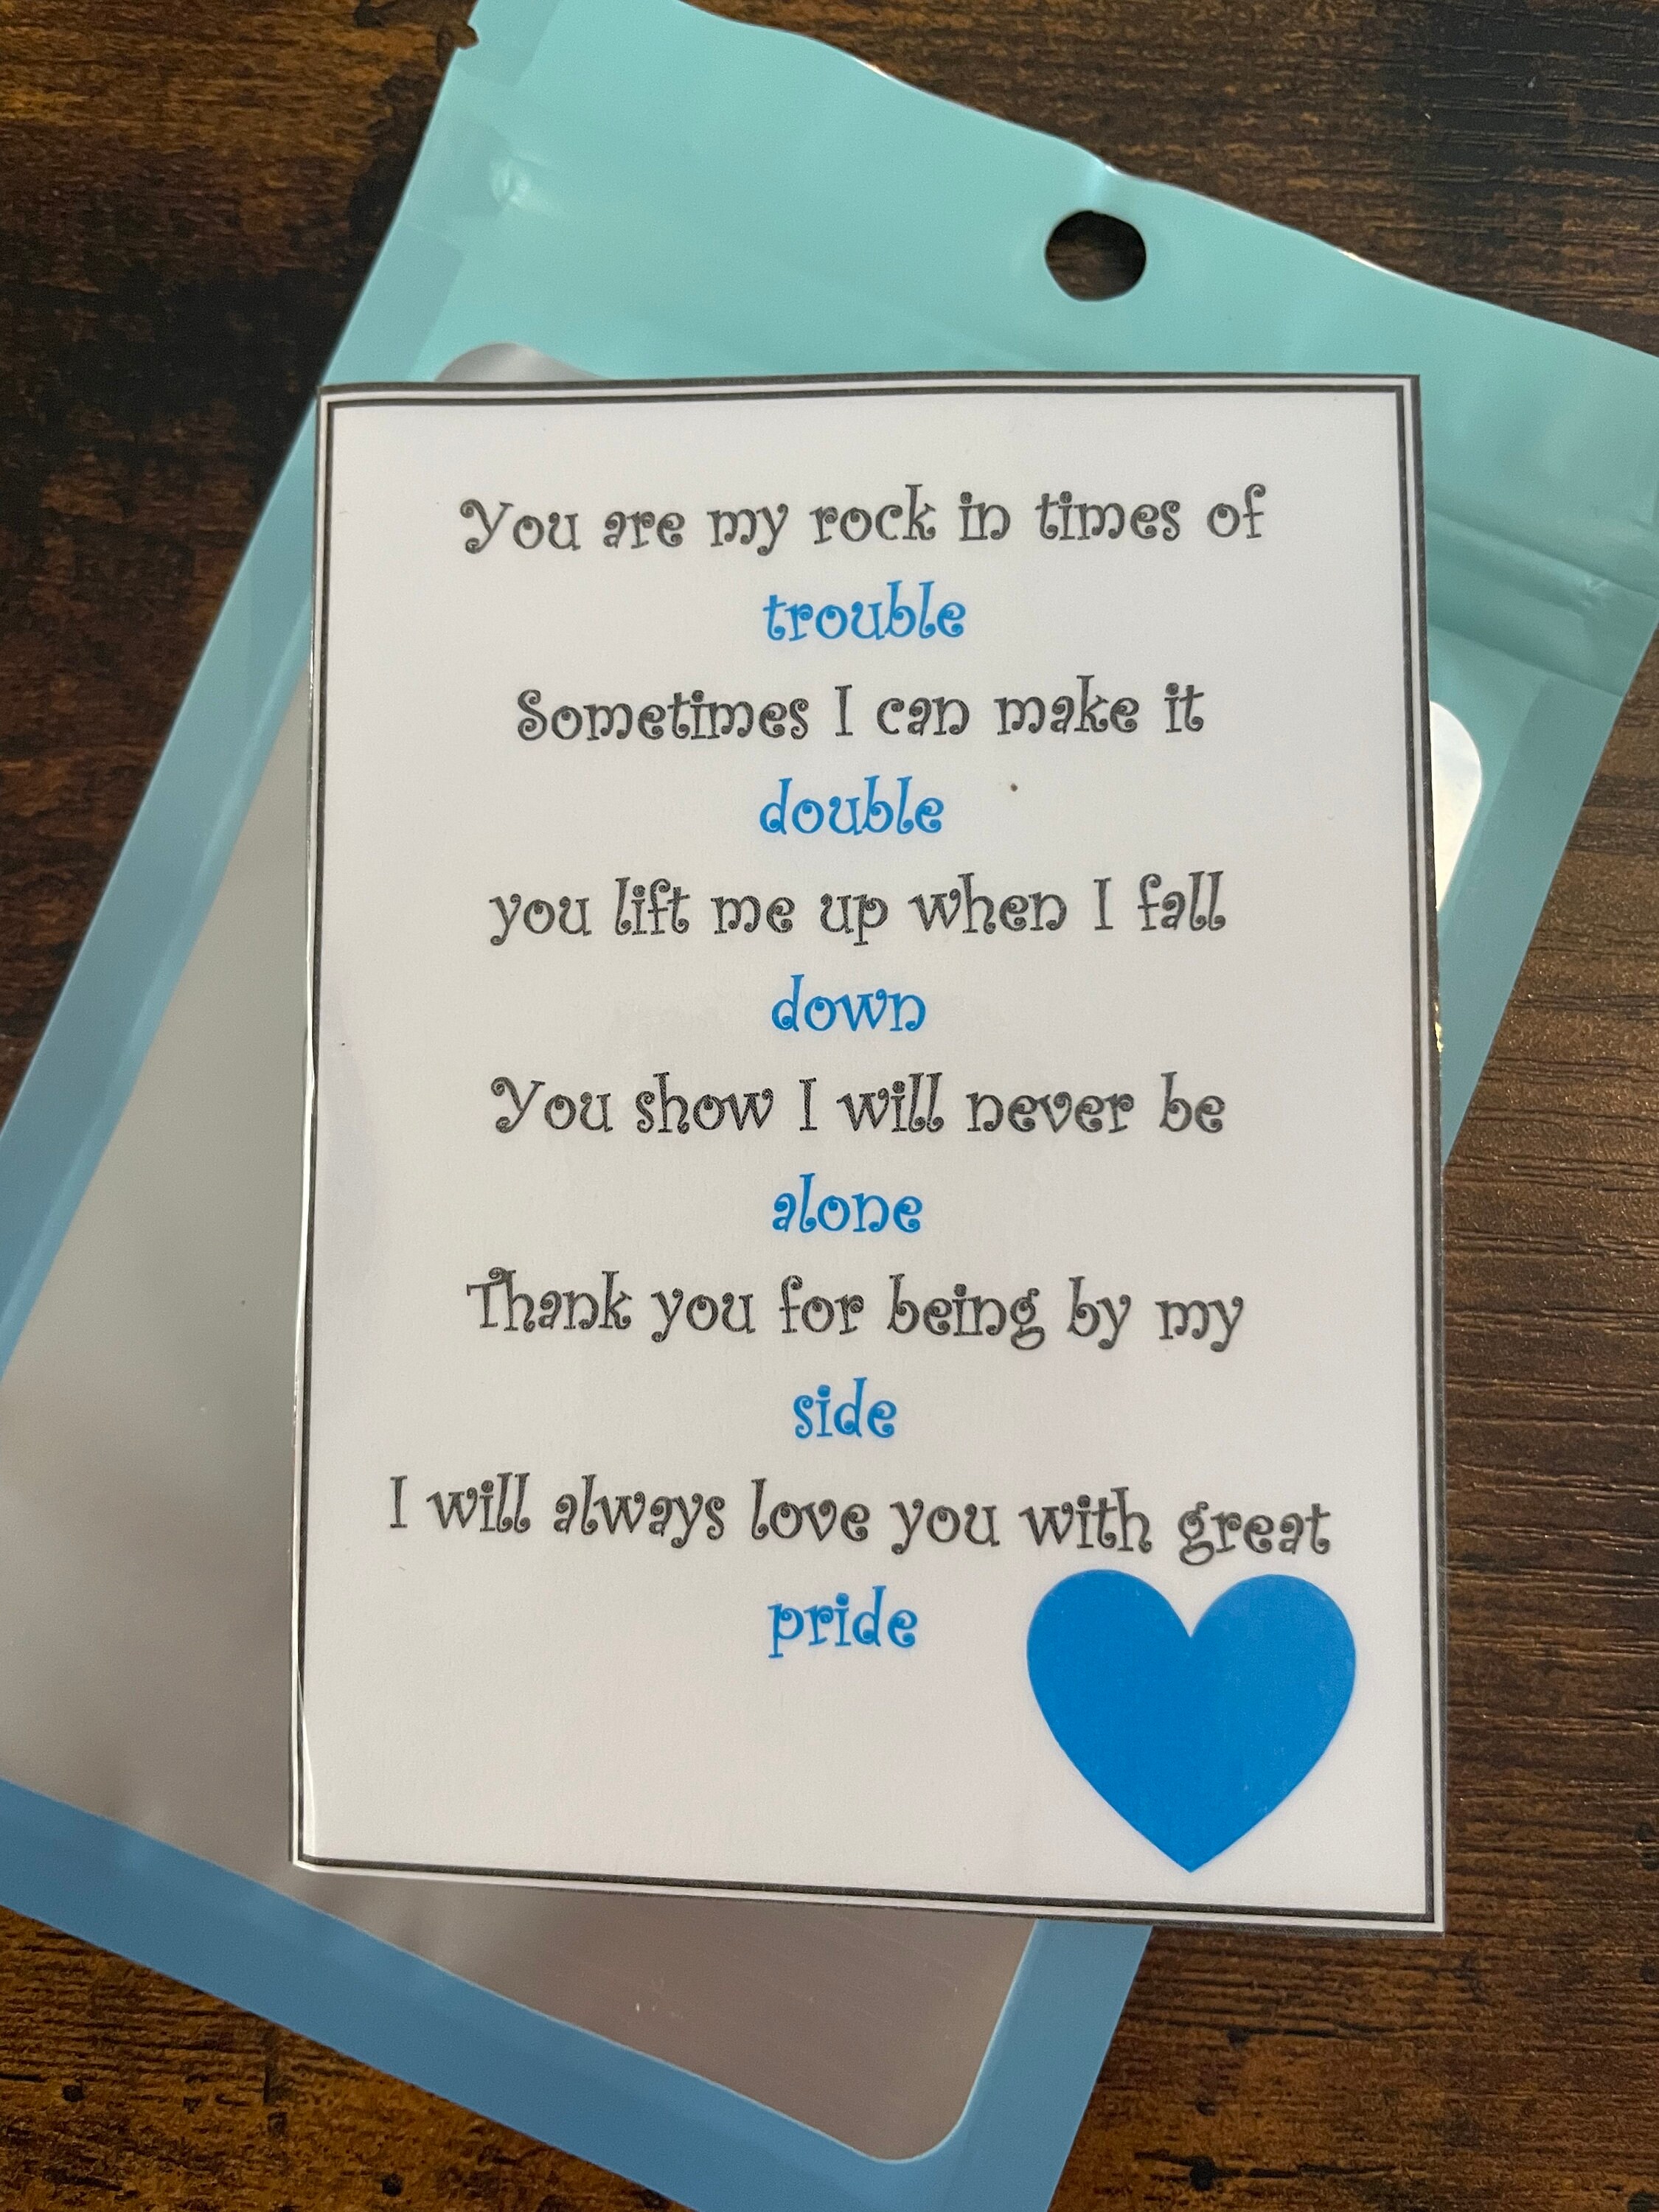 You are my rock in times of
trouble
Sometimes I can make it
double
you lift me up when I fall
down
You show I will never be
alone
Thank you for being by my
side
I will always love you with great
pride